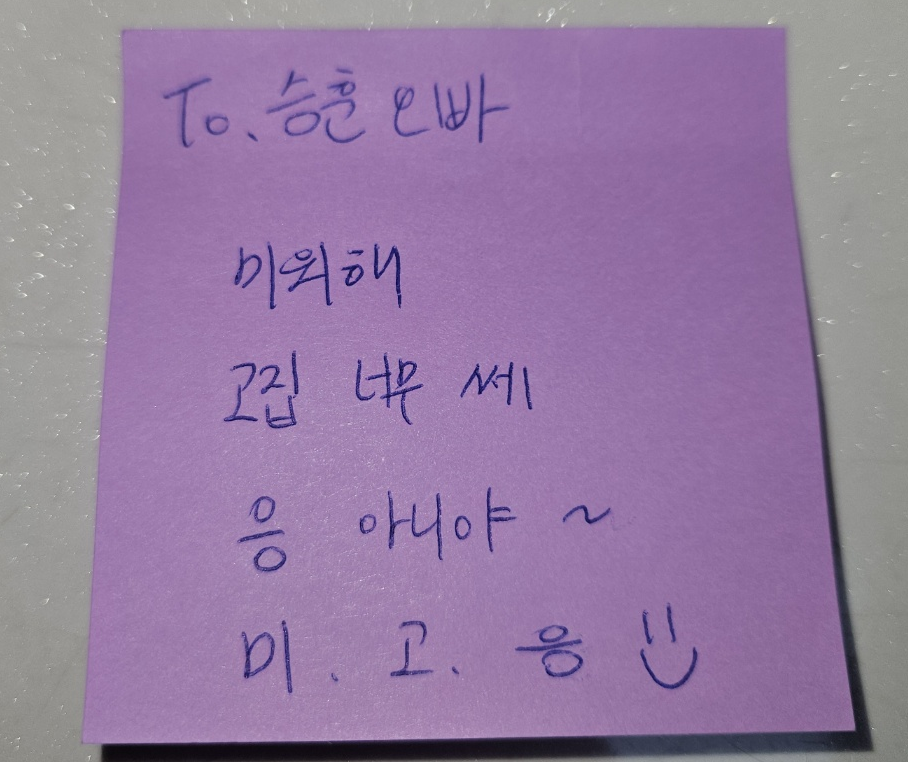 To. 승훈 오빠
미워해
고집 너무 쎄
응 아니야 ~
미. 고. 응 :)